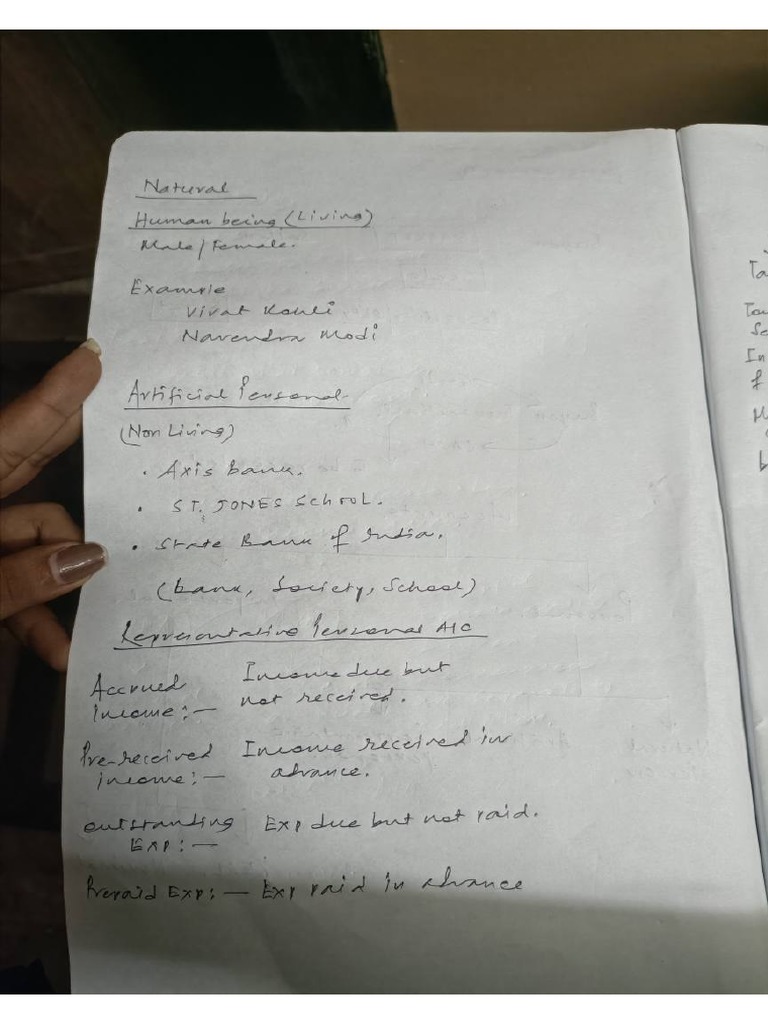 Natural
Human being (Living)
Male/Female.
Example
Virat Kohli
Narendra Modi
Artificial Personal
(Non Living)
• Axis bank.
• ST. JONES School.
• State Bank of India.
(bank, Society, School)
Representative Personal A/C
Accrued Income due but
income:— not received.
Pre-received Income received in
income:— advance.
outstanding Exp due but not paid.
Exp:—
Prepaid Exp:— Exp paid in advance
In
f